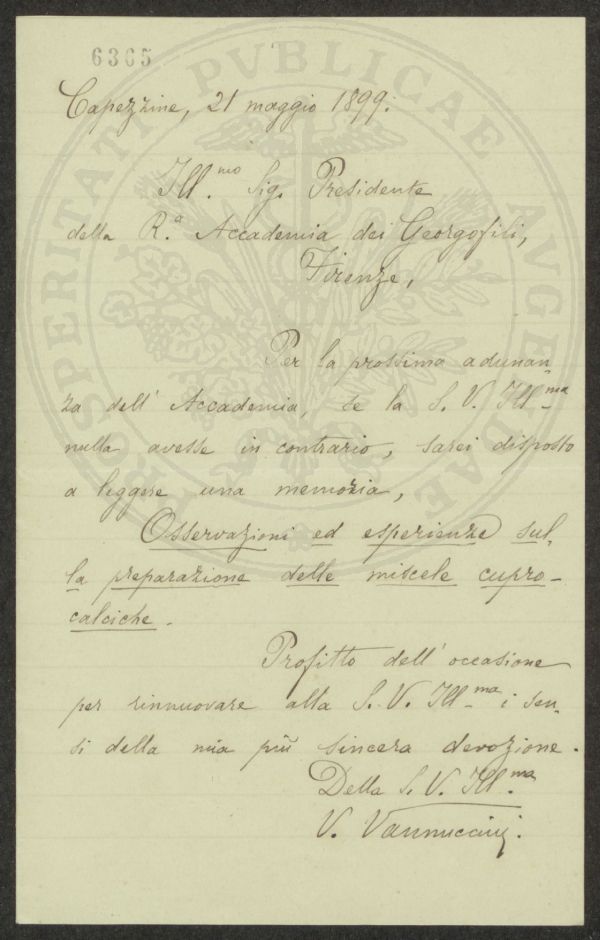 6365
PROSPERITATI PVBLICAE AVGENDAE
Capezzine, 21 maggio 1899.
Ill.mo Sig. Presidente
della R.a Accademia dei Georgofili,
Firenze,
Per la prossima adunan-
za dell' Accademia, se la S. V. Ill.ma
nulla avesse in contrario, sarei disposto
a leggere una memoria,
Osservazioni ed esperienze sul-
la preparazione delle miscele cupro-
calciche.
Profitto dell' occasione
per rinnuovare alla S. V. Ill.ma i sen-
si della mia più sincera devozione.
Della S. V. Ill.ma
V. Vannuccini.